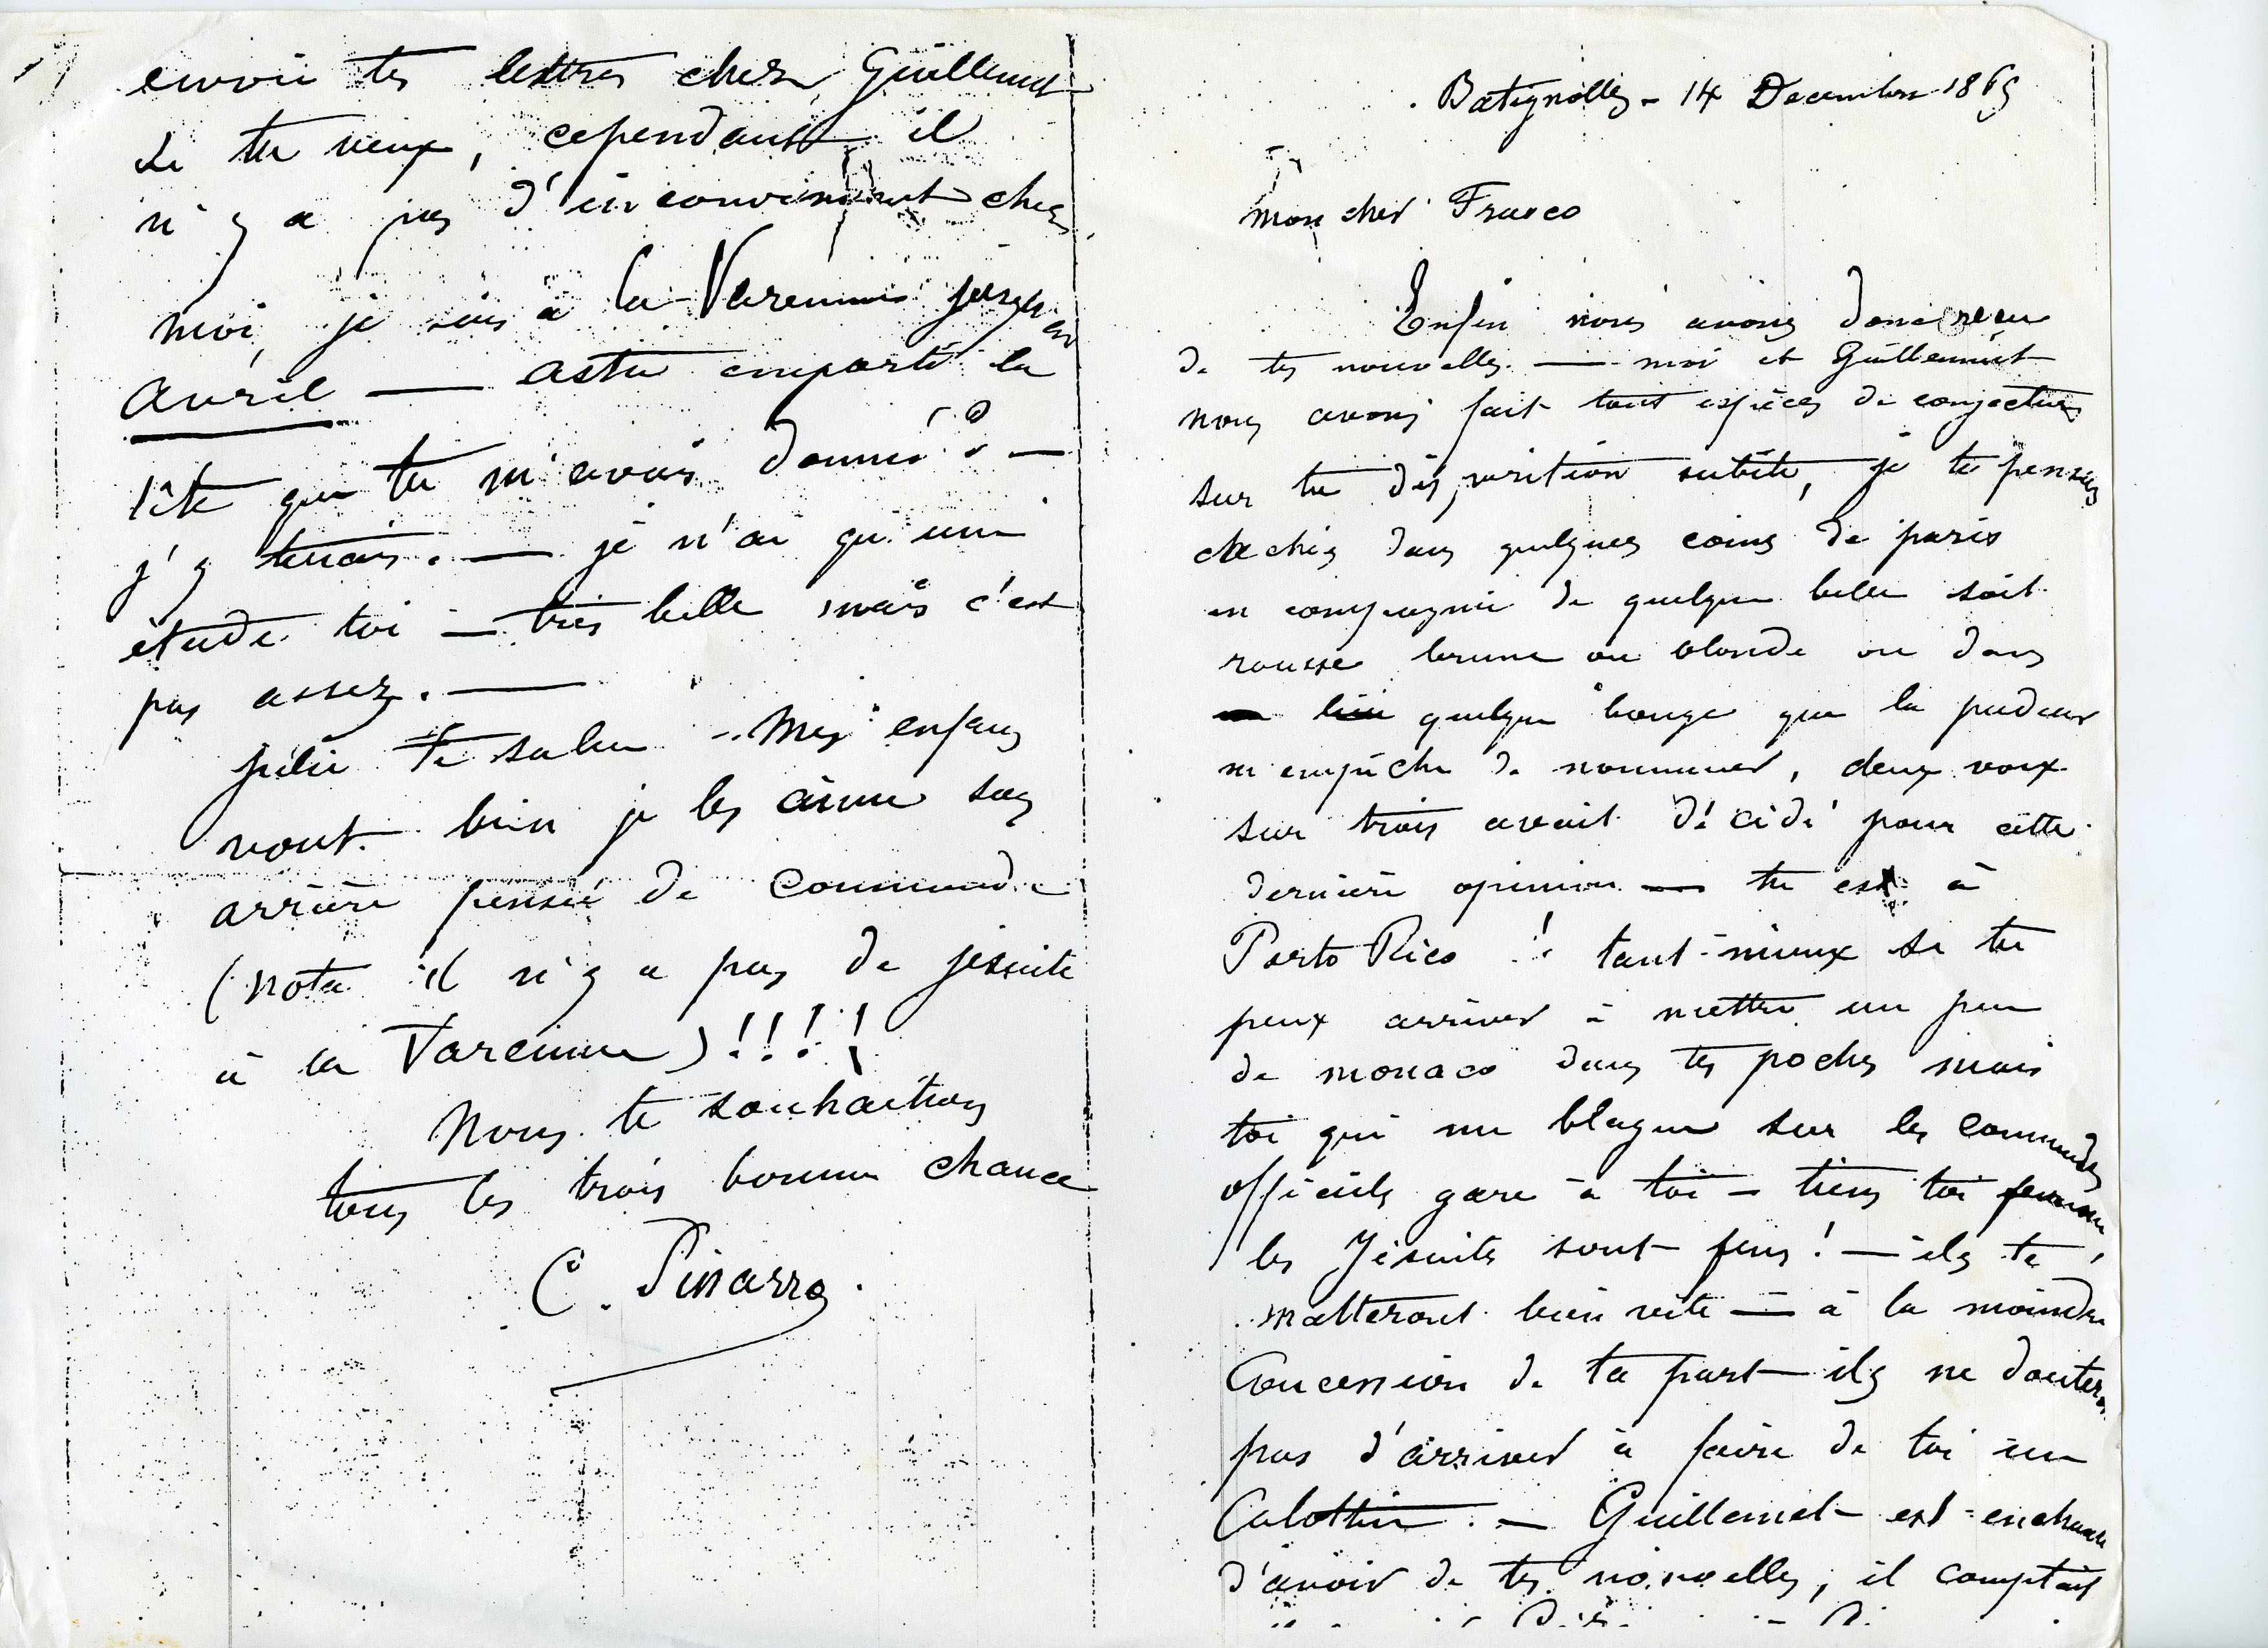 Batignolles - 14 Decembre 1865
mon cher Franco
Enfin nous avons donc reçu
de tes nouvelles — moi et Guillemet
nous avons fait tout espèces de conjectures
sur ta disparition subite, je te pensais
caché dans quelques coins de paris
en compagnie de quelque belle soit
rousse brune ou blonde ou dans
quelque bouge que la pudeur
m'empêche de nommer, deux voix
sur trois avait décidé pour cette
dernière opinion — tu est à
Porto Rico ! tant-mieux si tu
peux arriver à mettre un peu
de monaco dans tes poches mais
toi qui me blague sur les commandes
officiels gare à toi - tiens toi ferme,
les Jésuites sont fins ! — ils te
matteront bien vite — à la moindre
Concession de ta part ils ne douteront
pas d'arriver à faire de toi un
Calottin. — Guillemet est enchanté
d'avoir de tes nouvelles, il comptait
envoie tes lettres chez Guillemet
si tu veux, cependant il
n'y a pas d'inconvenient chez
moi, je suis à la Varenne jusqu'en
Avril — astu emporté la
tête que tu m'avais donné ? —
j'y tenais. — je n'ai qu'une
étude toi — très belle mais c'est
pas assez. —
julie te salue - Mes enfans
vont bien je les aime sans
arrière pensée de commande
(nota il n'y a pas de jésuite
à la Varenne) ! ! ! !
Nous te souhaitons
tous les trois bonne chance
C. Pissarro